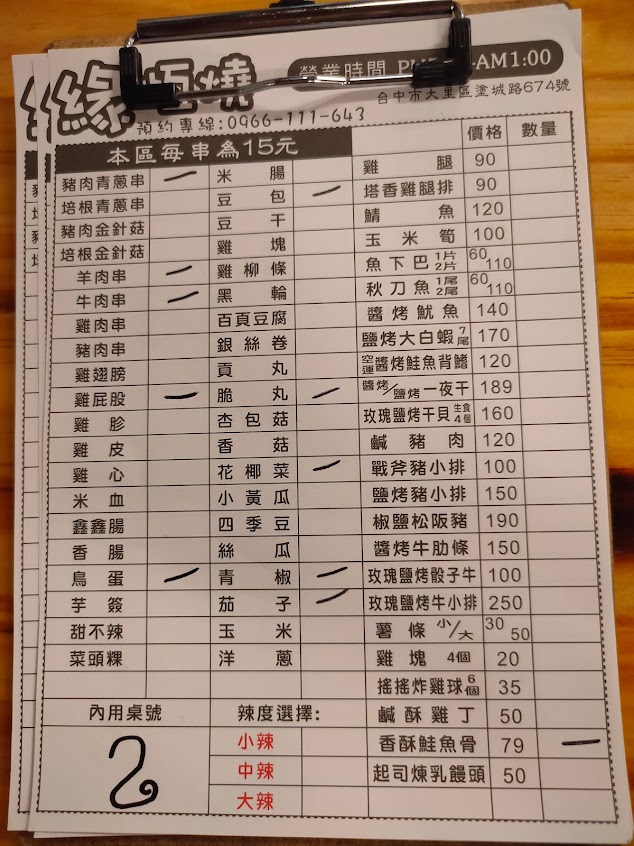 緣恆燒
營業時間 PM -AM1:00
台中市大里區塗城路674號
預約專線:0966-111-643
本區每串為15元 價格 數量
豬肉青蔥串 一 米腸 雞腿 90
培根青蔥串 豆包 一 塔香雞腿排 90
豬肉金針菇 豆干 鯖魚 120
培根金針菇 雞塊 玉米筍 100
羊肉串 一 雞柳條 魚下巴 1片 2片 60/110
牛肉串 一 黑輪 秋刀魚 1尾 2尾 60/110
雞肉串 百頁豆腐 醬烤魷魚 140
豬肉串 銀絲卷 鹽烤大白蝦 7尾 170
雞翅膀 貢丸 空運醬烤鮭魚背鰭 120
雞屁股 一 脆丸 一 醬烤/鹽烤一夜干 189
雞胗 杏包菇 玫瑰鹽烤干貝 生食4個 160
雞皮 香菇 鹹豬肉 120
雞心 花椰菜 一 戰斧豬小排 100
米血 小黃瓜 鹽烤豬小排 150
鑫鑫腸 四季豆 椒鹽松阪豬 190
香腸 絲瓜 醬烤牛肋條 150
鳥蛋 一 青椒 一 玫瑰鹽烤骰子牛 100
芋簽 茄子 一 玫瑰鹽烤牛小排 250
甜不辣 玉米 薯條 小/大 30/50
菜頭粿 洋蔥 雞塊 4個 20
搖搖炸雞球 6個 35
內用桌號 辣度選擇: 鹹酥雞丁 50
2 小辣 香酥鮭魚骨 79 一
中辣 起司煉乳饅頭 50
大辣